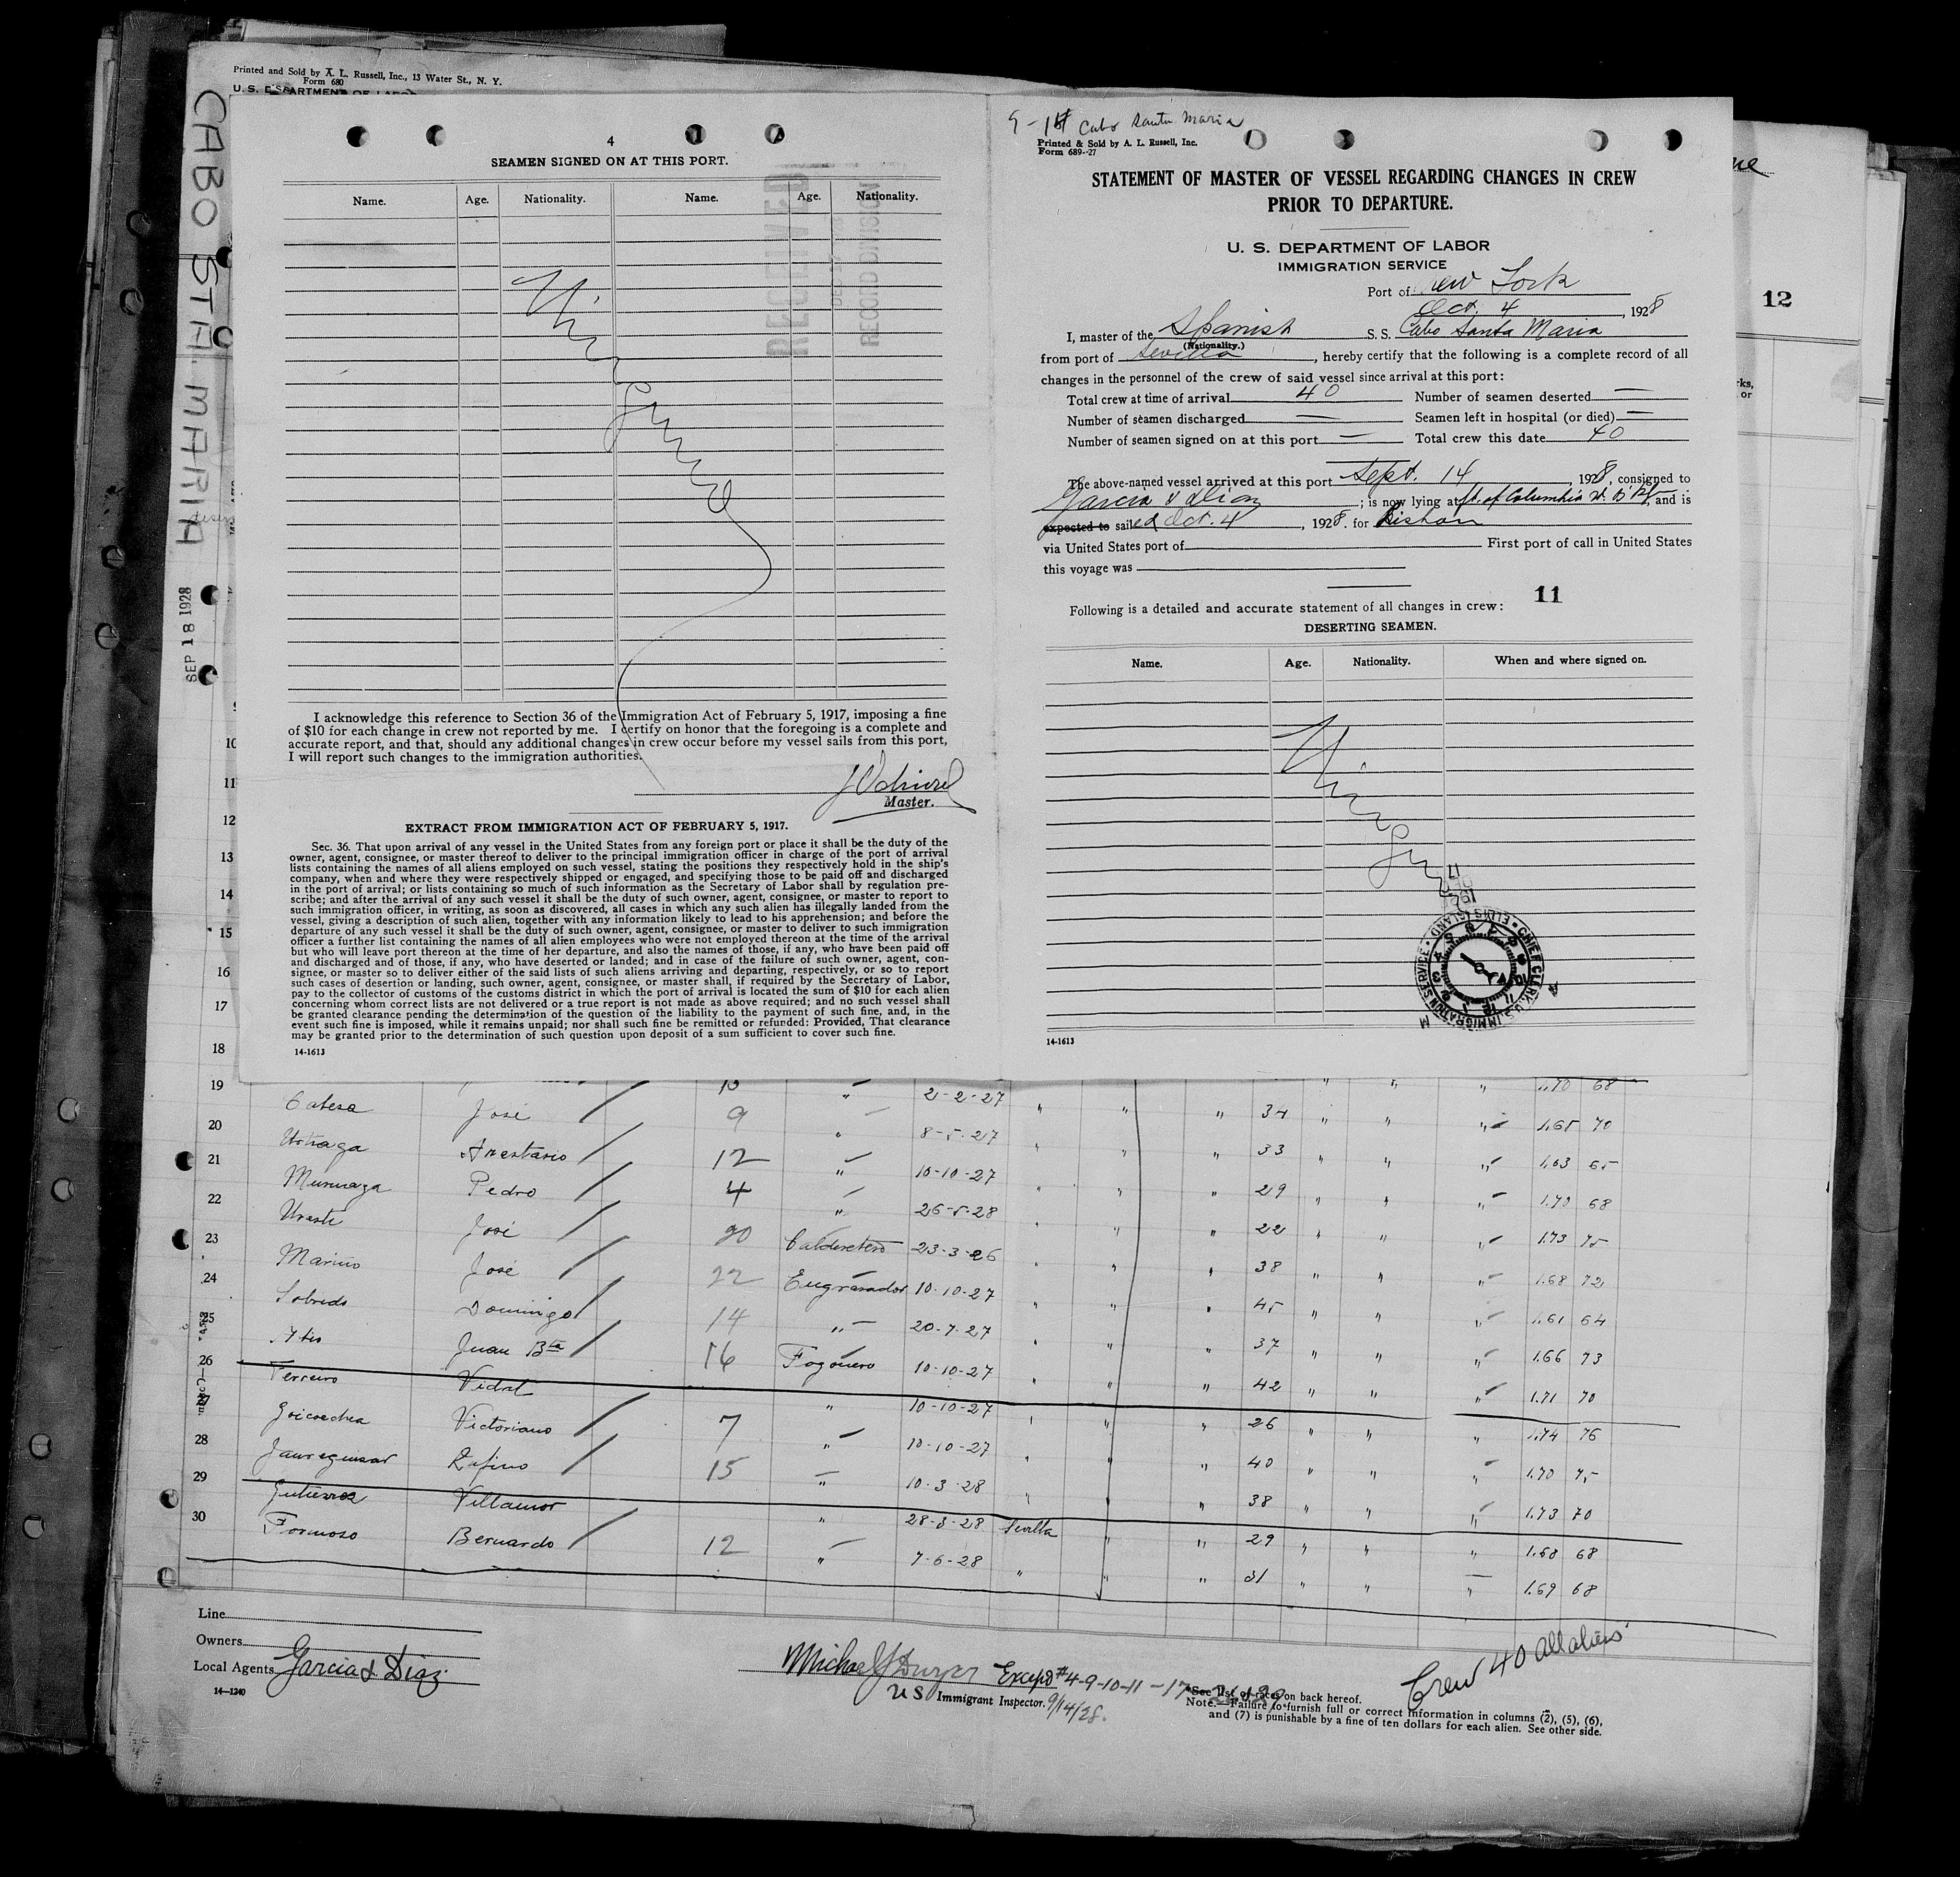 Printed and Sold by A. L. Russell, Inc., 13 Water St., N. Y.
Form 680
U. S. DEPARTMENT OF LABOR
CABO STA. MARIA
SEP 18 1928
12
4
SEAMEN SIGNED ON AT THIS PORT.
Name. Age. Nationality. Name. Age. Nationality.
RECEIVED
RECORD DIVISION
I acknowledge this reference to Section 36 of the Immigration Act of February 5, 1917, imposing a fine
of $10 for each change in crew not reported by me. I certify on honor that the foregoing is a complete and
accurate report, and that, should any additional changes in crew occur before my vessel sails from this port,
I will report such changes to the immigration authorities.
Master.
EXTRACT FROM IMMIGRATION ACT OF FEBRUARY 5, 1917.
Sec. 36. That upon arrival of any vessel in the United States from any foreign port or place it shall be the duty of the
owner, agent, consignee, or master thereof to deliver to the principal immigration officer in charge of the port of arrival
lists containing the names of all aliens employed on such vessel, stating the positions they respectively hold in the ship's
company, when and where they were respectively shipped or engaged, and specifying those to be paid off and discharged
in the port of arrival; or lists containing so much of such information as the Secretary of Labor shall by regulation pre-
scribe; and after the arrival of any such vessel it shall be the duty of such owner, agent, consignee, or master to report to
such immigration officer, in writing, as soon as discovered, all cases in which any such alien has illegally landed from the
vessel, giving a description of such alien, together with any information likely to lead to his apprehension; and before the
departure of any such vessel it shall be the duty of such owner, agent, consignee, or master to deliver to such immigration
officer a further list containing the names of all alien employees who were not employed thereon at the time of the arrival
but who will leave port thereon at the time of her departure, and also the names of those, if any, who have been paid off
and discharged and of those, if any, who have deserted or landed; and in case of the failure of such owner, agent, con-
signee, or master so to deliver either of the said lists of such aliens arriving and departing, respectively, or so to report
such cases of desertion or landing, such owner, agent, consignee, or master shall, if required by the Secretary of Labor,
pay to the collector of customs of the customs district in which the port of arrival is located the sum of $10 for each alien
concerning whom correct lists are not delivered or a true report is not made as above required; and no such vessel shall
be granted clearance pending the determination of the question of the liability to the payment of such fine, and, in the
event such fine is imposed, while it remains unpaid; nor shall such fine be remitted or refunded: Provided, That clearance
may be granted prior to the determination of such question upon deposit of a sum sufficient to cover such fine.
14-1613
Cabo Santa Maria
Printed & Sold by A. L. Russell, Inc.
Form 689--27
STATEMENT OF MASTER OF VESSEL REGARDING CHANGES IN CREW
PRIOR TO DEPARTURE.
U. S. DEPARTMENT OF LABOR
IMMIGRATION SERVICE
Port of New York
Oct. 4, 1928
I, master of the Spanish S. S. Cabo Santa Maria
(Nationality.)
from port of Sevilla, hereby certify that the following is a complete record of all
changes in the personnel of the crew of said vessel since arrival at this port:
Total crew at time of arrival 40 Number of seamen deserted —
Number of seamen discharged — Seamen left in hospital (or died) —
Number of seamen signed on at this port — Total crew this date 40
The above-named vessel arrived at this port Sept. 14, 1928, consigned to
Garcia & Diaz; is now lying at ft. of Columbia St. and is
expected to sailed Oct. 4, 1928. for
via United States port of First port of call in United States
this voyage was
11
Following is a detailed and accurate statement of all changes in crew:
DESERTING SEAMEN.
Name. Age. Nationality. When and where signed on.
CHIEF CLERK, U.S. IMMIGRATION SERVICE • ELLIS ISLAND
14-1613
10
11
12
13
14
15
16
17
18
19 2-2-27 1.70 68
Cabeza José 9 " 8-5-27 " " " 34 " " " 1.65 70
20
Anastasio 12 " 10-10-27 " " " 33 " " " 1.63 65
21
Pedro 4 " 26-5-28 " " " 29 " " " 1.70 68
22
José 20 Calderetero 23-3-26 " " " 22 " " " 1.73 75
23
Mariño José 22 Engrasador 10-10-27 " " " 38 " " " 1.68 72
24
Sobrido Domingo 14 " 20-7-27 " " " 45 " " " 1.61 64
25
Juan Bta 16 Fogonero 10-10-27 " " " 37 " " " 1.66 73
26
Ferreiro Vidal " 10-10-27 " " " 42 " " " 1.71 70
27
Goicoechea Victoriano 7 " 10-10-27 " " " 26 " " " 1.74 76
28
Jaureguizar Rufino 15 " 10-3-28 " " " 40 " " " 1.70 75
29
Gutierrez Villamor " 28-3-28 Sevilla " " 38 " " " 1.73 70
30
Formoso Bernardo 12 " 7-6-28 " " " 29 " " " 1.68 68
31 " " " 1.69 68
Line
Owners
Local Agents Garcia & Diaz
14-1240
Michael J Dwyer Except #4-9-10-11-17
US Immigrant Inspector. 9/14/28.
Crew 40 all aliens
*See list of races on back hereof.
Note.—Failure to furnish full or correct information in columns (2), (5), (6),
and (7) is punishable by a fine of ten dollars for each alien. See other side.